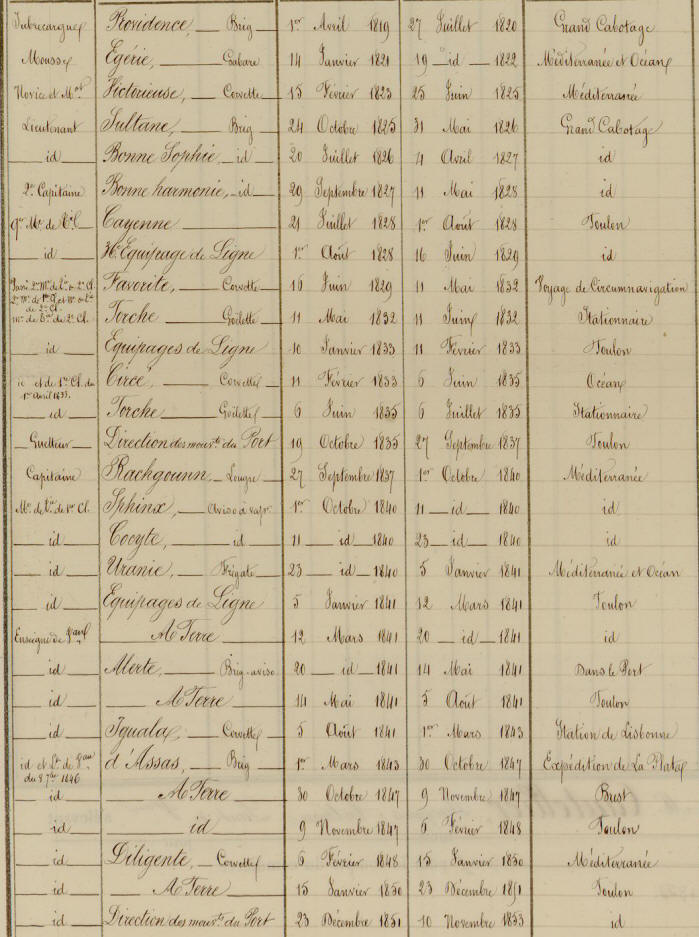 Subrécargue Providence, Brig 1er Avril 1819 27 Juillet 1820 Grand Cabotage
Mousse Egérie, Gabare 14 Janvier 1821 19 id 1822 Méditerranée et Océan
Novice et Mot Victorieuse, Corvette 15 Février 1823 25 Juin 1825 Méditerranée
Lieutenant Sultane, Brig 24 Octobre 1825 31 Mai 1826 Grand Cabotage
id Bonne Sophie, id 20 Juillet 1826 4 Avril 1827 id
2e Capitaine Bonne harmonie, id 29 Septembre 1827 11 Mai 1828 id
Cayenne 21 Juillet 1828 1er Août 1828 Toulon
id Equipage de Ligne 1er Août 1828 16 Juin 1829 id
Favorite, Corvette 16 Juin 1829 11 Mai 1832 Voyage de Circumnavigation
de 2e Cl.
Torche Goëlette 11 Mai 1832 11 Juin 1832 Stationnaire
id Equipages de Ligne 10 Janvier 1833 11 Février 1833 Toulon
id et de 1re Cl. du Circé, Corvette 11 Février 1833 6 Juin 1835 Océan
1er Avril 1833.
id Torche, Goëlette 6 Juin 1835 6 Juillet 1835 Stationnaire
Guetteur Direction des mouvts du Port 19 Octobre 1835 27 Septembre 1837 Toulon
Capitaine Rachgounn, Lougre 27 Septembre 1837 1er Octobre 1840 Méditerranée
Sphinx, Aviso à vapr 1er Octobre 1840 11 id 1840 id
id Cocyte, id 11 id 1840 23 id 1840 id
id Uranie, Frégate 23 id 1840 5 Janvier 1841 Méditerranée et Océan
id Equipages de Ligne 5 Janvier 1841 12 Mars 1841 Toulon
Enseigne de Vau A Terre 12 Mars 1841 20 id 1841 id
id Alerte, Brig-aviso 20 id 1841 14 Mai 1841 Dans le Port
id A Terre 14 Mai 1841 5 Août 1841 Toulon
id Iguala, Corvette 5 Août 1841 1er Mars 1843 Station de Lisbonne
id et Lt de Vau d'Assas, Brig 1er Mars 1843 30 Octobre 1847 Expédition de La Plata
du 8 7bre 1846
id A Terre 30 Octobre 1847 9 Novembre 1847 Brest
id id 9 Novembre 1847 6 Février 1848 Toulon
id Diligente, Corvette 6 Février 1848 15 Janvier 1850 Méditerranée
id A Terre 15 Janvier 1850 23 Décembre 1851 Toulon
id Direction des mouvts du Port 23 Décembre 1851 10 Novembre 1853 id